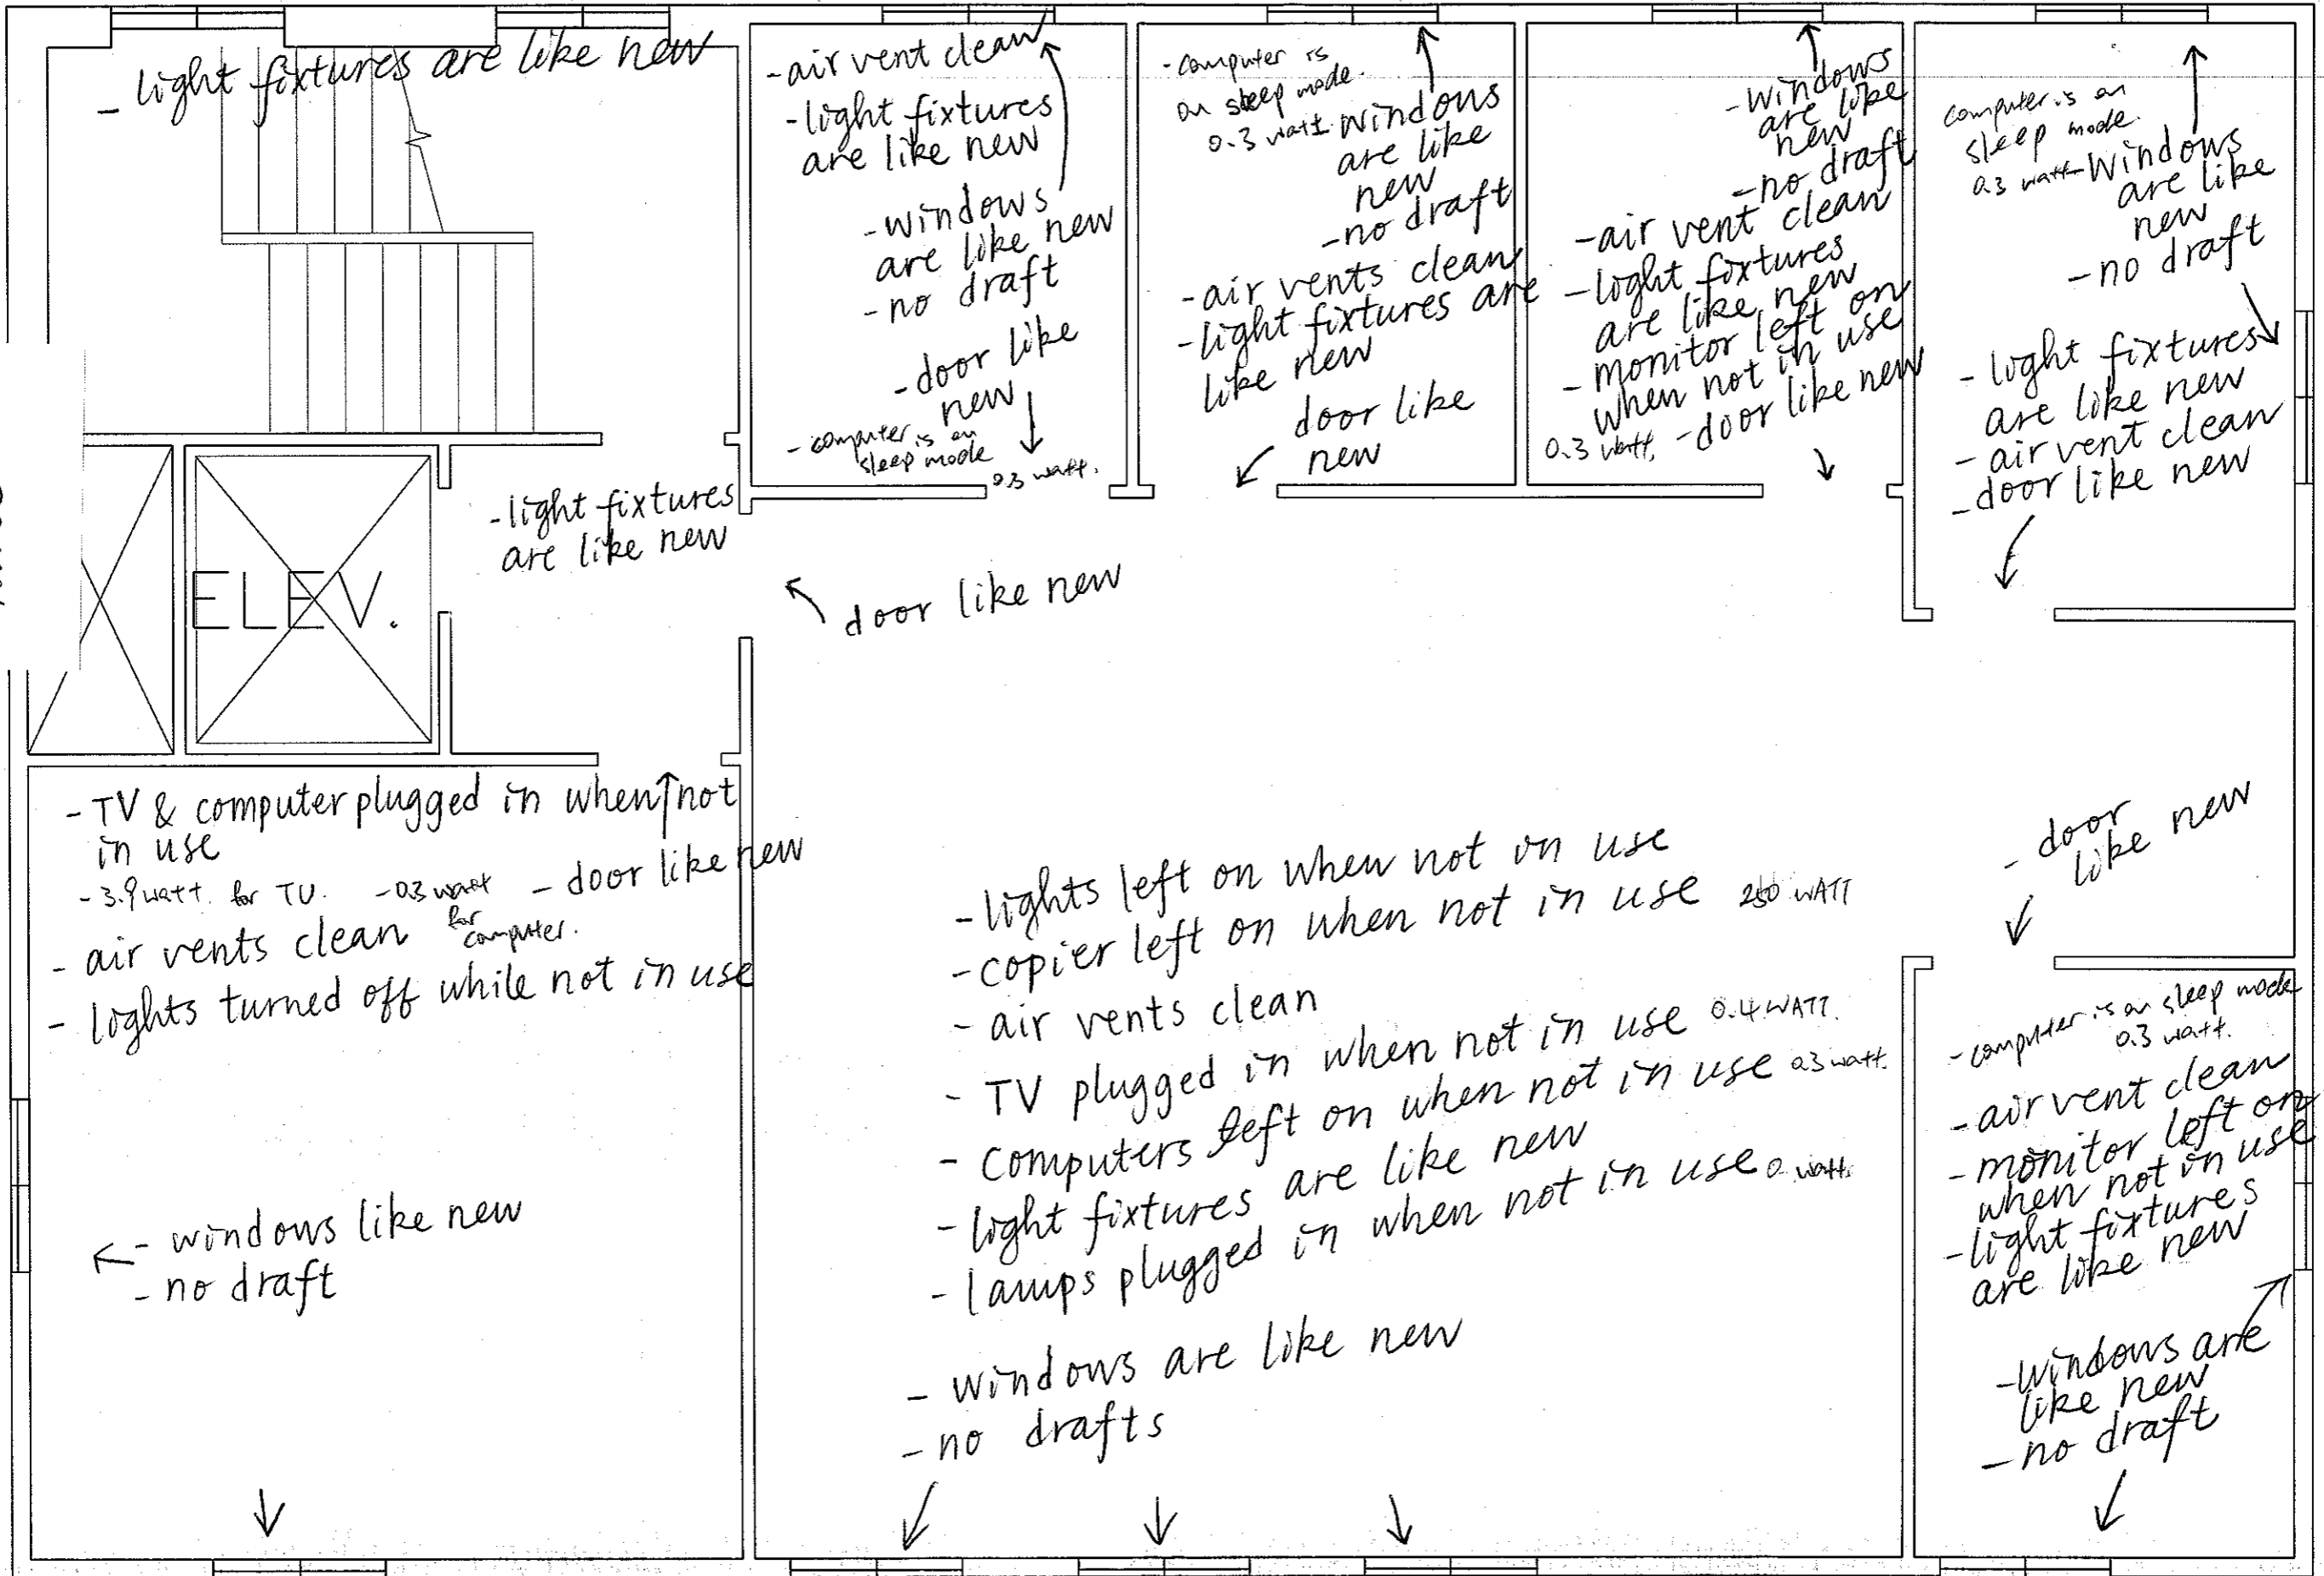 - light fixtures are like new
- air vent clean
- light fixtures
are like new
- windows
are like new
- no draft
- door like
new
- computer is on
sleep mode
0.3 watt.
- computer is
on sleep mode.
0.3 watt.
windows
are like
new
- no draft
- air vents clean
- light fixtures are
like new
door like
new
- windows
are like
new
- no draft
- air vent clean
- light fixtures
are like new
- monitor left on
when not in use
0.3 watt.
- door like new
computer is on
sleep mode.
0.3 watt
- windows
are like
new
- no draft
- light fixtures
are like new
- air vent clean
- door like new
ELEV.
- light fixtures
are like new
door like new
- TV & computer plugged in when not
in use
- 3.9 watt. for TV. - 0.3 watt
for
computer.
- door like new
- air vents clean
- lights turned off while not in use
- windows like new
- no draft
- lights left on when not in use
- copier left on when not in use 250 WATT
- air vents clean
- TV plugged in when not in use 0.4 WATT.
- computers left on when not in use 0.3 watt.
- light fixtures are like new
- lamps plugged in when not in use 0 watt.
- windows are like new
- no drafts
- door
like new
- computer is on sleep mode
0.3 watt.
- air vent clean
- monitor left on
when not in use
- light fixtures
are like new
- windows are
like new
- no draft